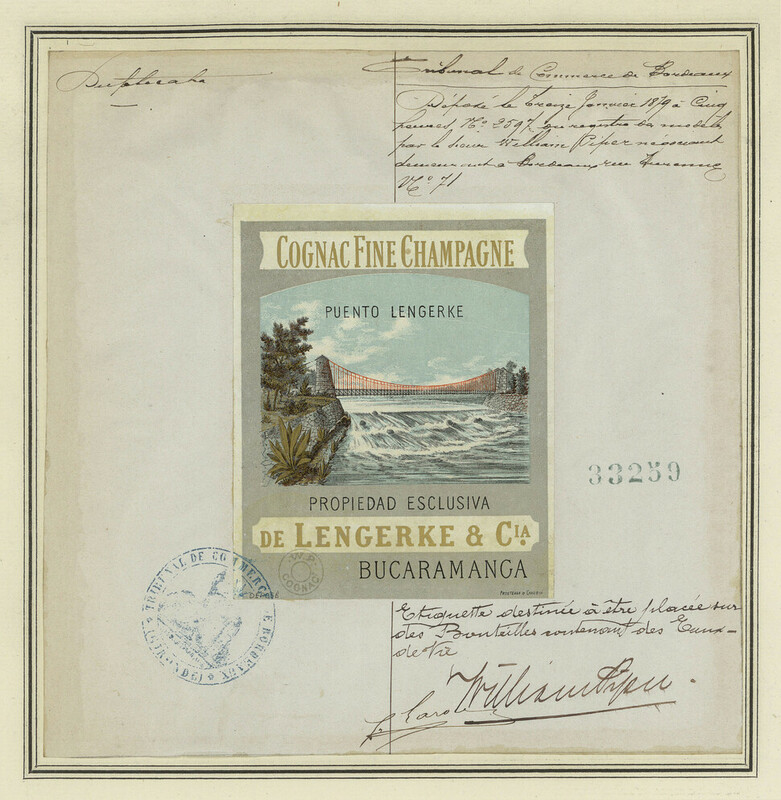 Duplicata
Tribunal de Commerce de Bordeaux
Déposé le Treize Janvier 1879 à Cinq
heures No. 2597 au registre des modèles
par le Sieur William Piper négociant
demeurant à Bordeaux rue Turenne
No. 71
COGNAC FINE CHAMPAGNE
PUENTO LENGERKE
33259
PROPIEDAD ESCLUSIVA
DE LENGERKE & CIA.
BUCARAMANGA
W.P.
COGNAC
DÉPOSÉ
TRIBUNAL DE COMMERCE DE BORDEAUX
(GIRONDE)
Etiquette destinée à être placée sur
des Bouteilles contenant des Eaux-
de-Vie
William Piper.